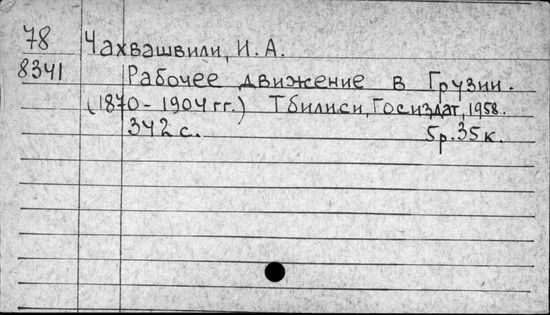 78 Чахвашвили, И. А.
8341 Рабочее движение в Грузии.
(1870-1904 гг.) Тбилиси, Госиздат, 1958.
342 с. 5р. 35к.